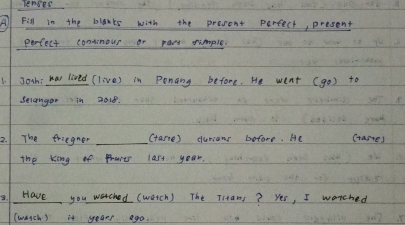 Tenses
A Fill in the blanks with the present perfect, present
perfect continous or past simple.
1. Joshi has lived (live) in Penang before. He went (go) to
Selangor in 2018.
2. The friegner ________ (taste) durians before. He ________ (taste)
the king of fruits last year.
3. Have you watched (watch) The Titans? Yes, I watched
(watch) it years ago.